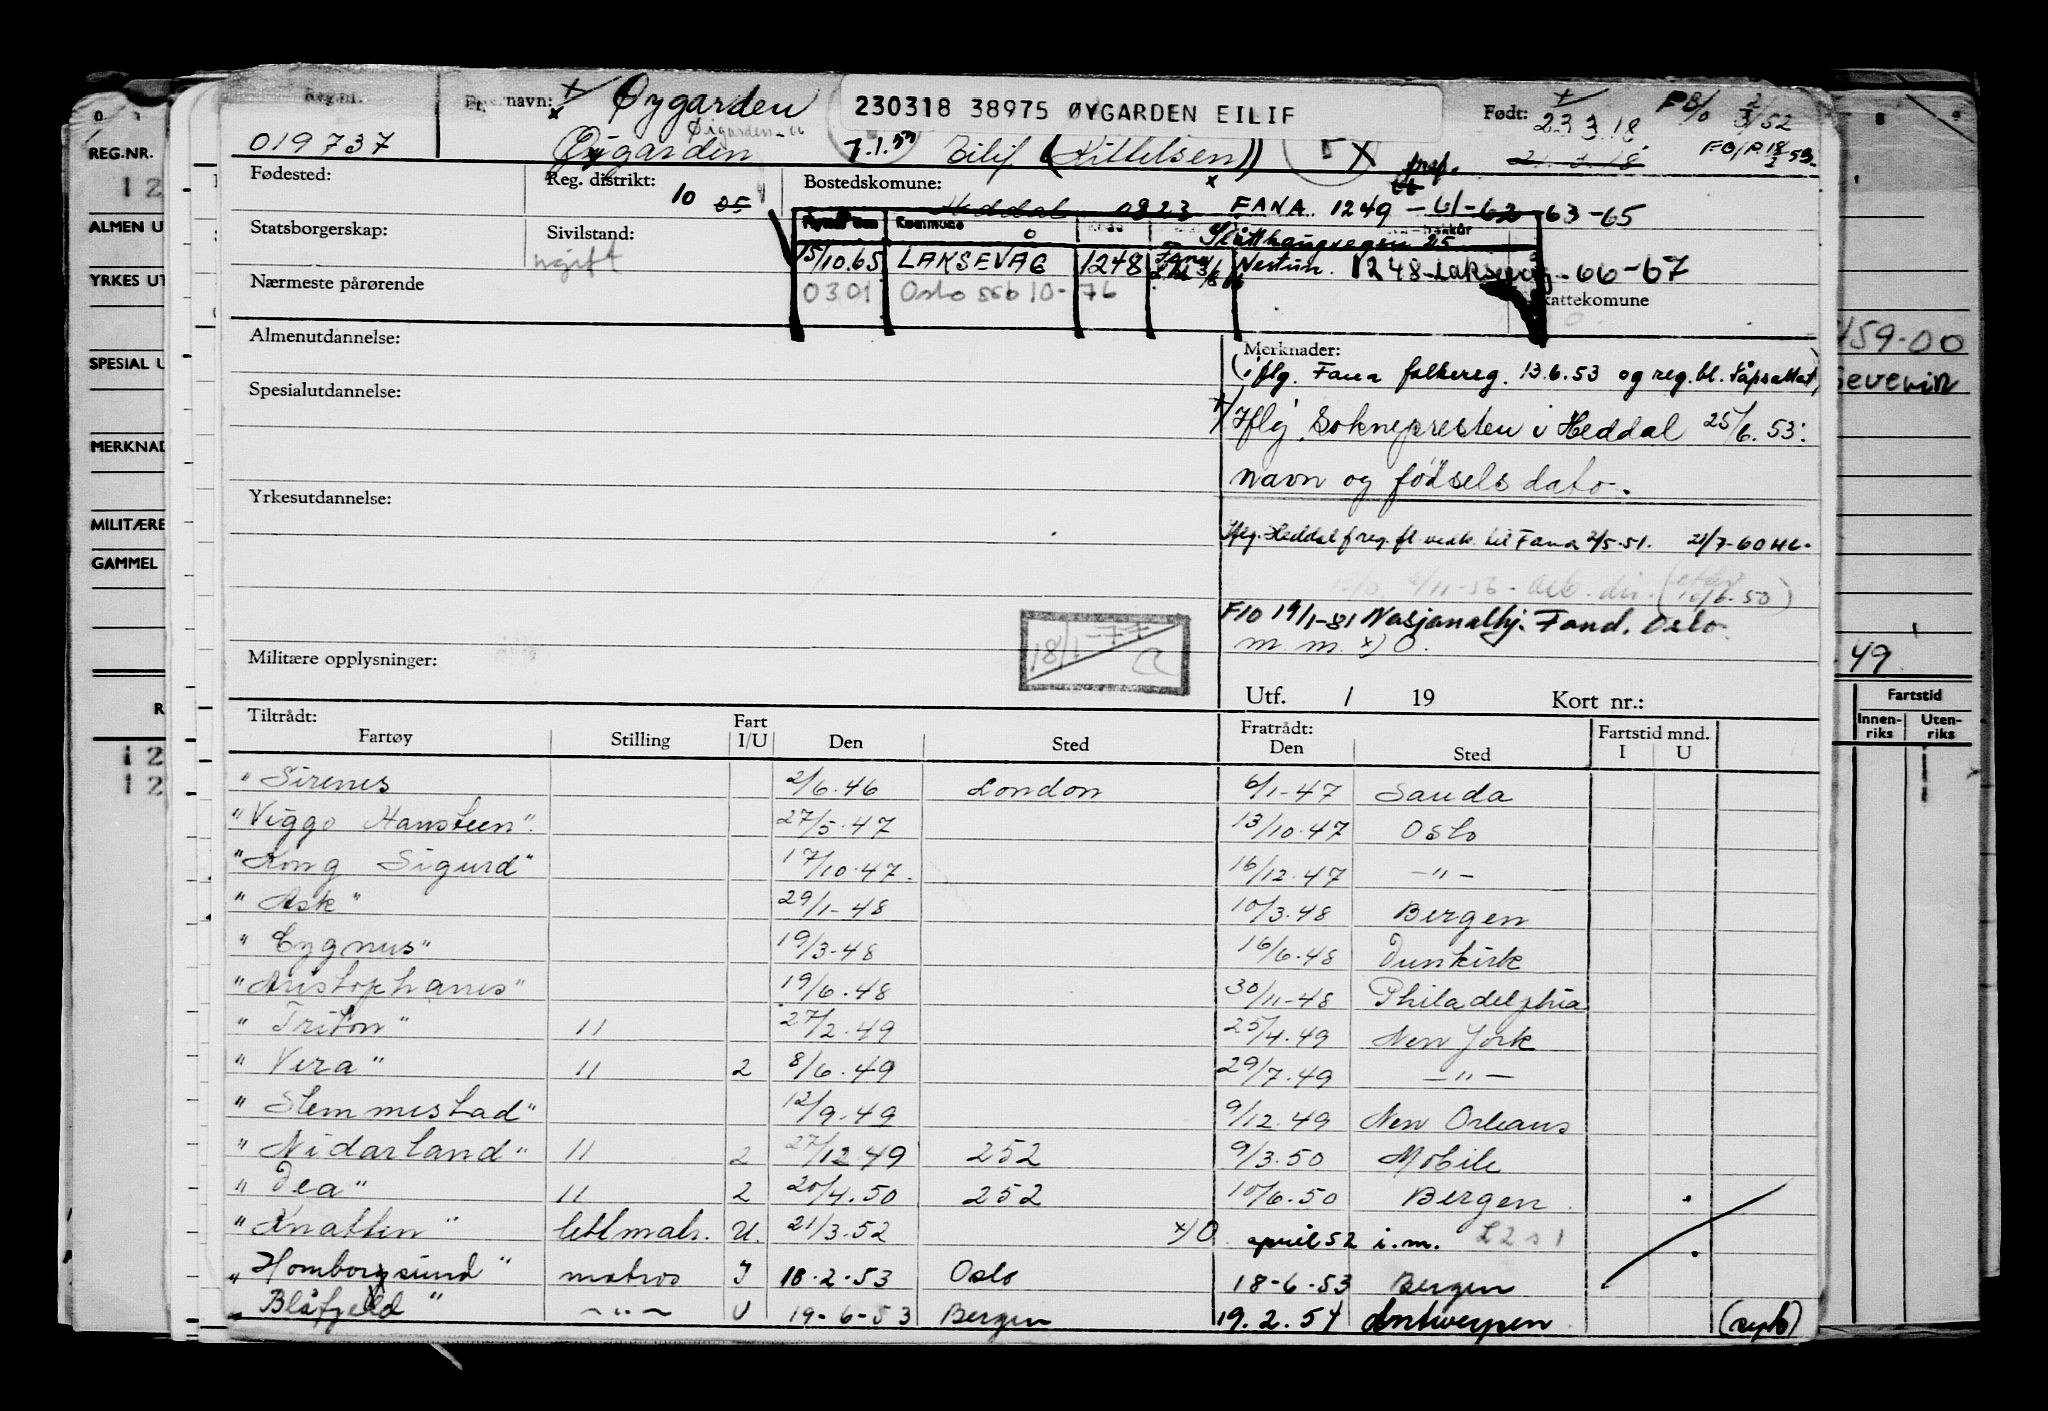 Reg.nr. Per navn: x Øygarden 230318 38975 ØYGARDEN EILIF Født: 23.3.18. FB/O 2/3/52
019737 Øygarden 7.1.57 Eilif (Kittelsen) x 21.3.18 FO/P. 18/2 53.
Fødested: Reg. distrikt: 10 05 Bostedskomune: Heddal 0823 FANA. 1249 -61-62-63-65
Statsborgerskap: Sivilstand: ugift Kommune Slåtthaugvegen 25
15/10.65 LAKSEVÅG 1248 Nestun. 1248 Laksevåg -66-67
Nærmeste pårørende 0301 Oslo ssb 10-76 kattekomune
Almenutdannelse: Merknader:
(iflg. Fana folkereg. 13.6.53 og reg.bl.
Spesialutdannelse:
x) Iflg. Soknepresten i Heddal 25/6.53:
navn og fødselsdato.
Yrkesutdannelse:
Iflg. Heddal freg. fl. vedk. til Fana 2/5-51. 21/7-60 HL.
F10 19/1-81 Nasjonalhj. Fond. Oslo
m.m. x) O.
Militære opplysninger: 18/1-77
Utf. / 19 Kort nr.:
Tiltrådt: Fart Fratrådt: Fartstid mnd.
Fartøy Stilling I/U Den Sted Den Sted I U
" Sirenes 2/6.46 London 6/1-47 Sauda
"Viggo Hansteen". 27/5.47 13/10.47 Oslo
"Kong Sigurd" 17/10.47. 16/12.47 -"-
"Ask" 29/1-48 10/3.48 Bergen
"Cygnus" 19/3-48 16/6.48 Dunkirk
"Aristophanes" 19/6.48 30/11-48 Philadelphia
"Triton" 11 27/2.49 25/4.49 New York
"Vera" 11 2 8/6.49 29/7.49 -"-
"Slemmestad" 12/9.49 9/12.49 New Orleans
"Nidarland" 11 2 27/12 49 252 9/3.50 Mobile
"Dea" 11 2 20/4.50 252 10/6.50 Bergen
"Knatten" lettmatr. U. 21/3.52 x) O april 52 i.m.
"Homborgsund" matros I 18-2-53 Oslo 18-6-53 Bergen
"Blåfjeld" -"- U 19-6-53 Bergen 19.2.54 Antwerpen (syk)
REG.NR.
12
ALMEN U
YRKES UT
SPESIAL U
MERKNAD
MILITÆRE
GAMMEL
R
12
12
459-00
Severin
49
Fartstid
Innen-riks Uten-riks